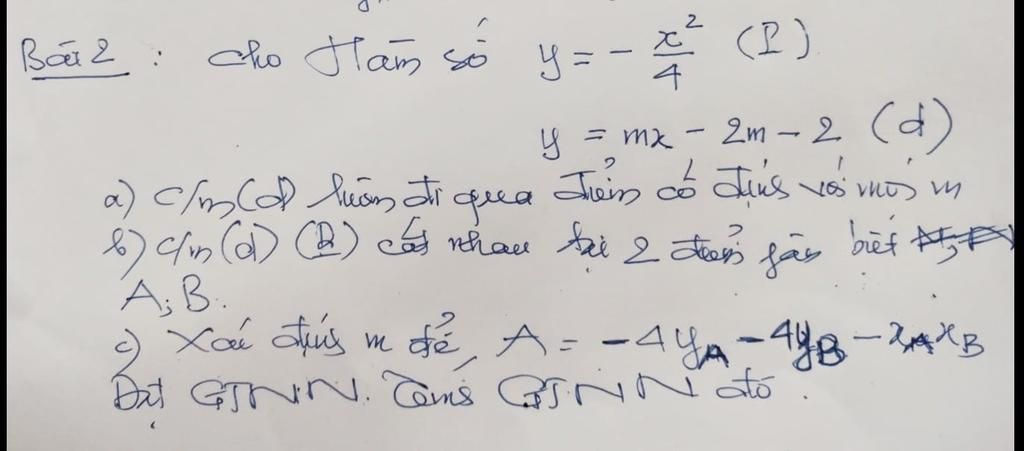 Bài 2 : cho Hàm số y = - x²/4 (P)
y = mx - 2m - 2 (d)
a) c/m (d) luôn đi qua điểm cố định với mọi m
b) c/m (d) (P) cắt nhau tại 2 điểm phân biệt
A; B.
c) Xác định m để A = -4y_A - 4y_B - x_A x_B
Đạt GTNN. Tính GTNN đó.